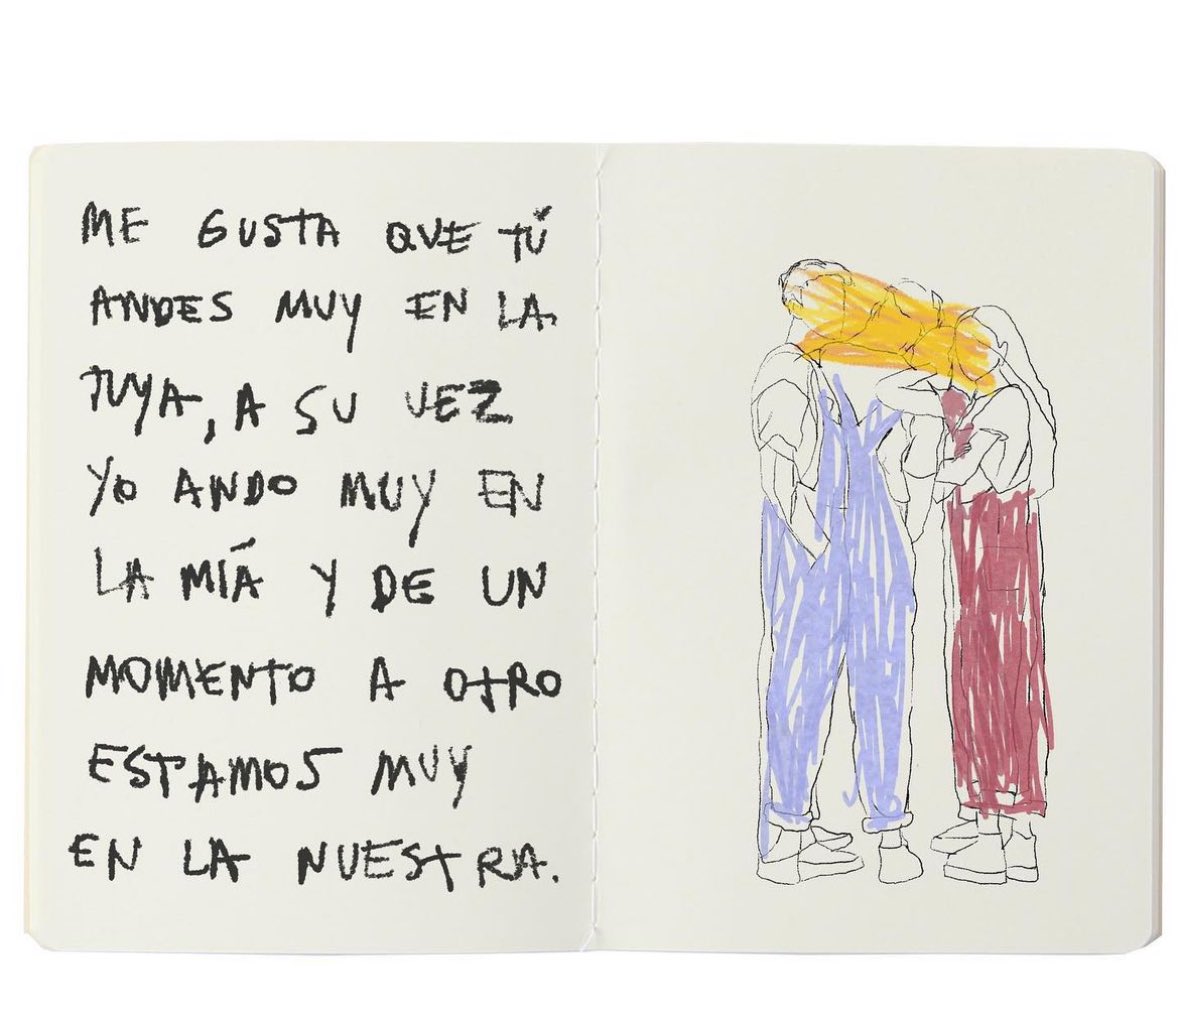 ME GUSTA QUE TÚ
ANDES MUY EN LA
TUYA, A SU VEZ
YO ANDO MUY EN
LA MÍA Y DE UN
MOMENTO A OTRO
ESTAMOS MUY
EN LA NUESTRA.